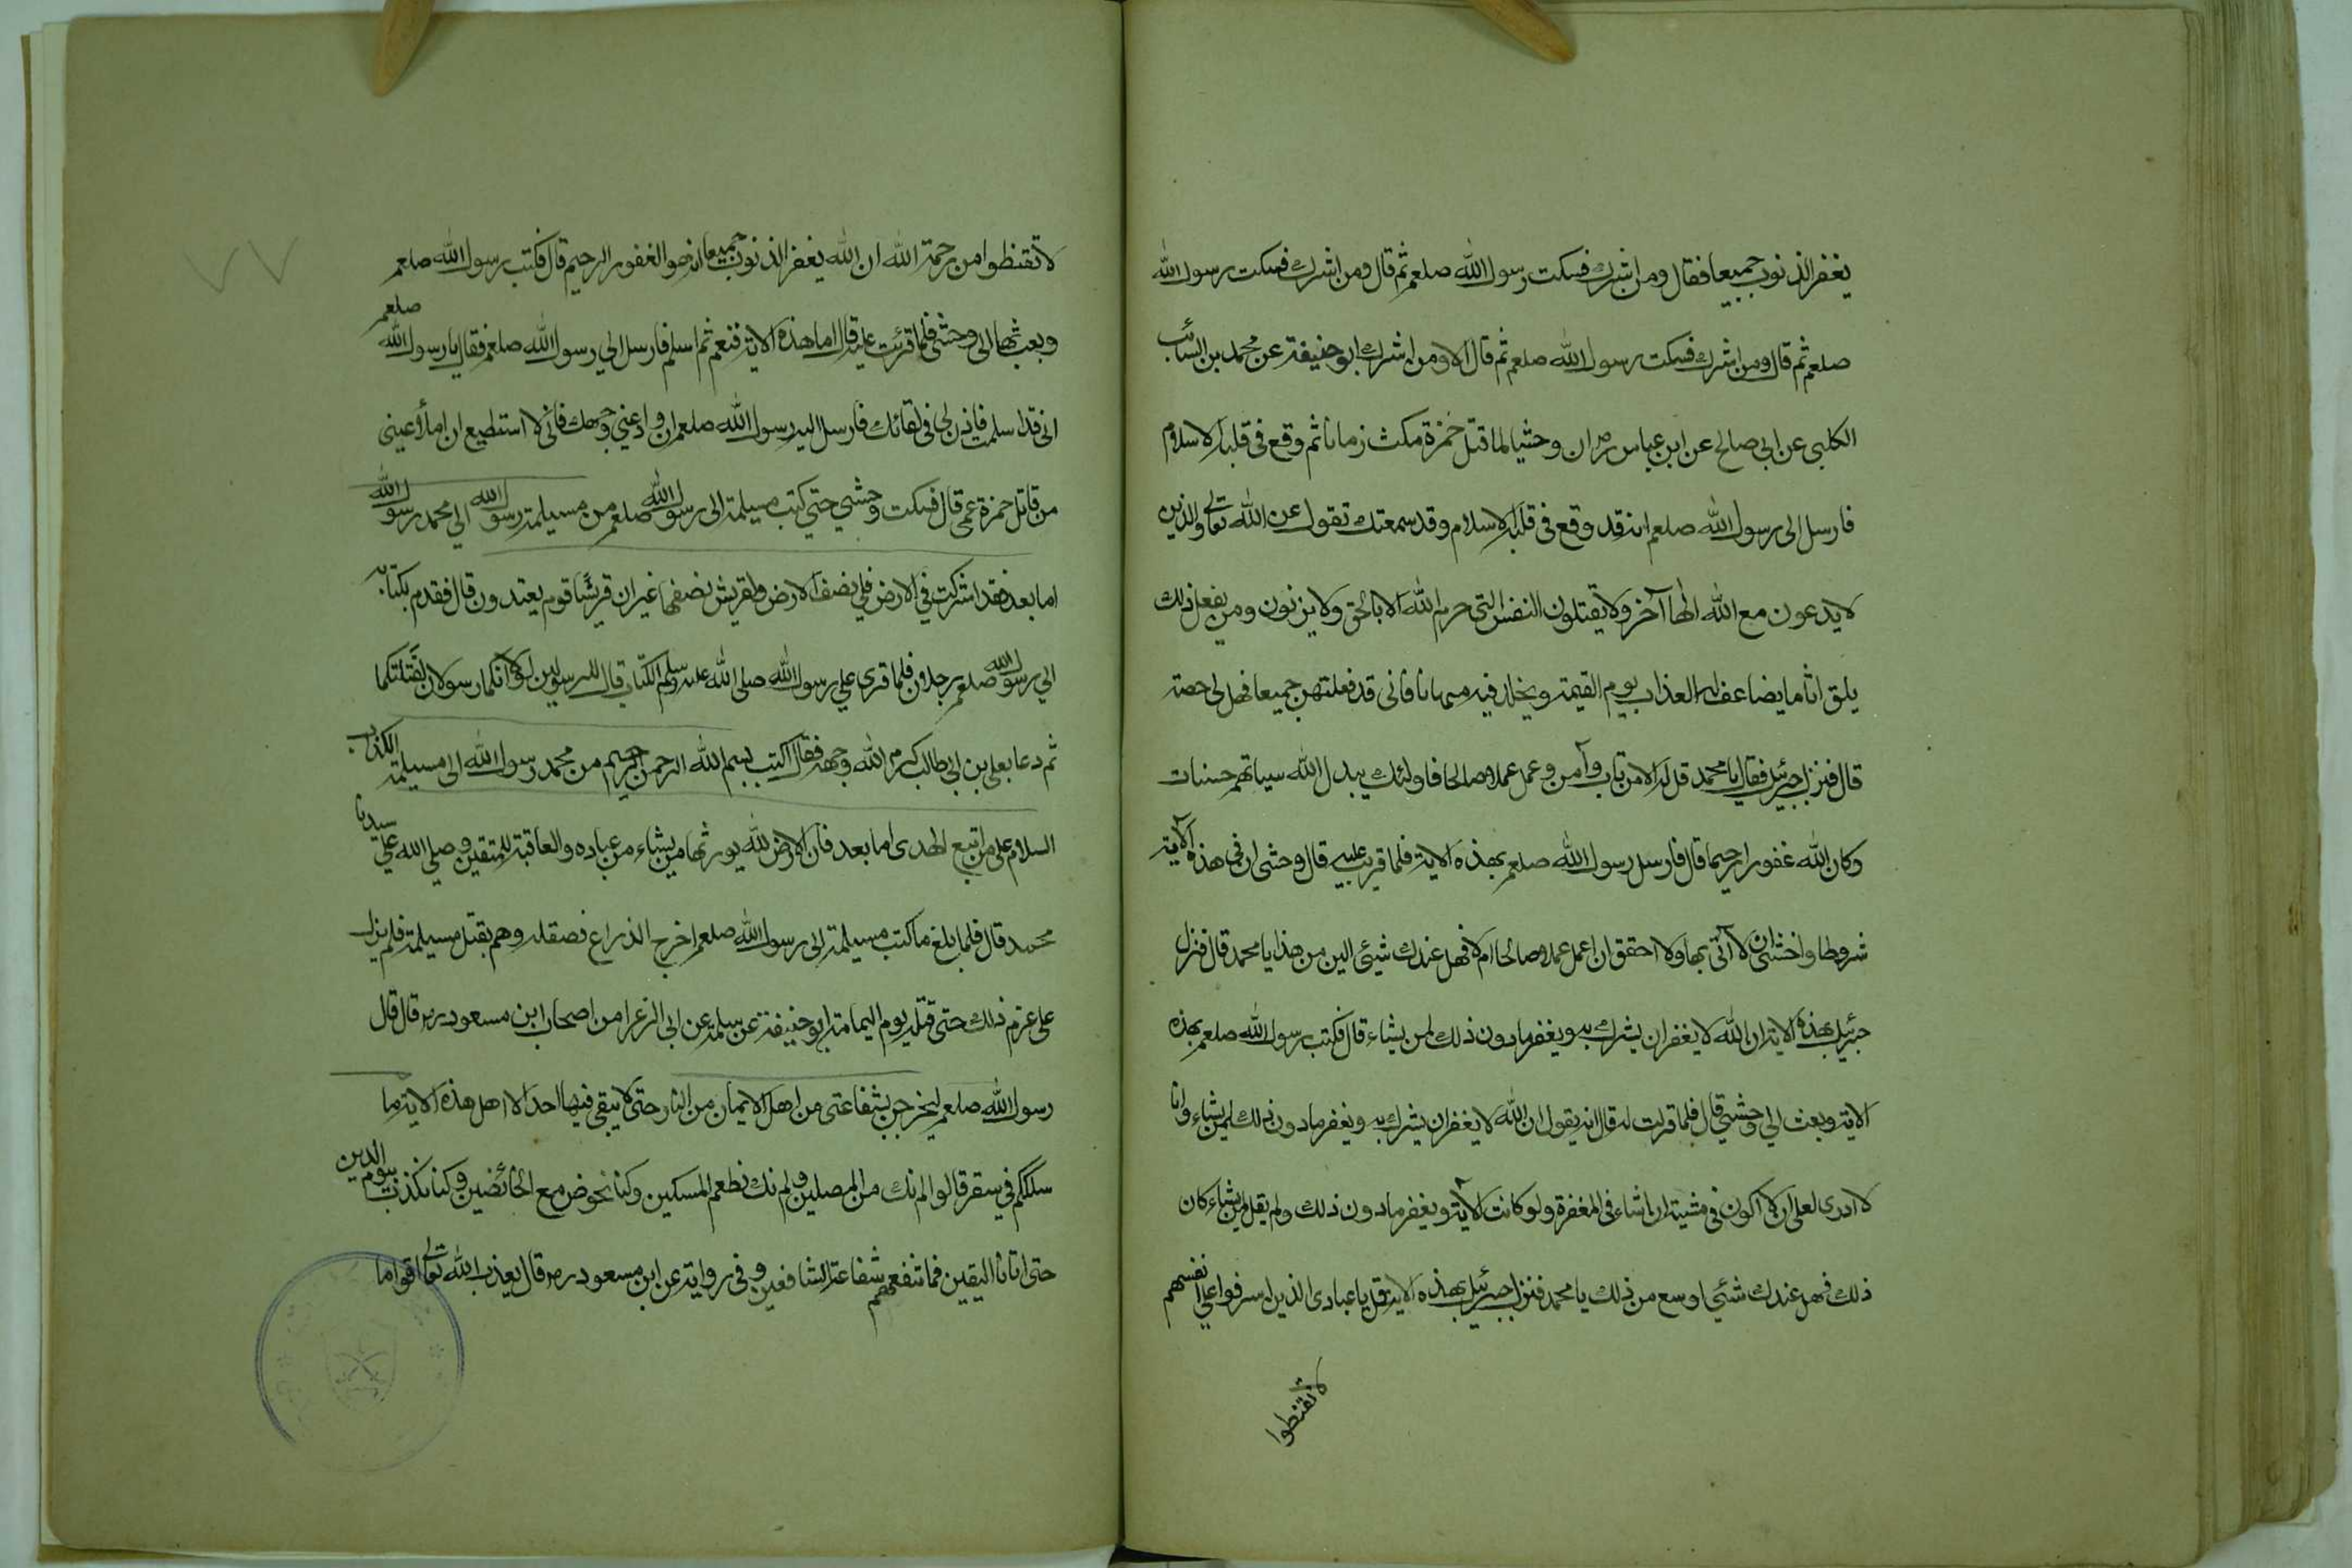 يغفر الذنوب جميعا فقال ومن اشرك فسكت رسول الله صلعم ثم قال ومن اشرك فسكت رسول الله
صلعم ثم قال ومن اشرك فسكت رسول الله صلعم ثم قال الا ومن اشرك ابو حنيفة عن محمد بن السائب
الكلبي عن ابي صالح عن ابن عباس رض ان وحشيا لما قتل حمزة مكث زمانا ثم وقع في قلبه الاسلام
فارسل الى رسول الله صلعم انه قد وقع في قلبه الاسلام وقد سمعتك تقول عن الله تعالى والذين
لا يدعون مع الله الها آخر ولا يقتلون النفس التي حرم الله الا بالحق ولا يزنون ومن يفعل ذلك
يلق اثاما يضاعف له العذاب يوم القيمة ويخلد فيه مهانا فاني قد فعلتهن جميعا فهل لي رخصة
قال فنزل جبرئيل فقال يا محمد قل له الا من تاب وآمن وعمل عملا صالحا فاولئك يبدل الله سياتهم حسنات
وكان الله غفورا رحيما قال فارسل رسول الله صلعم بهذه الاية فلما قريت عليه قال وحشى ان في هذه الاية
شروطا واخشى ان لا آتي بها ولا احقق ان اعمل عملا صالحا ام لا فهل عندك شيئ الين من هذا يا محمد قال فنزل
جبرئيل بهذه الاية ان الله لا يغفر ان يشرك به ويغفر ما دون ذلك لمن يشاء قال فكتب رسول الله صلعم بهذه
الاية وبعث الي وحشي قال فلما قرئت له قال انه يقول ان الله لا يغفر ان يشرك به ويغفر ما دون ذلك لمن يشاء وانا
لا ادرى لعلى ان لا اكون في مشيته ان شاء في المغفرة ولو كانت الاية ويغفر ما دون ذلك ولم يقل لمن يشاء كان
ذلك فهل عندك شئي اوسع من ذلك يا محمد فنزل جبرئيل بهذه الاية قل يا عبادى الذين اسرفوا على انفسهم
لا تقنطوا
لا تقنطوا من رحمة الله ان الله يغفر الذنوب جميعا انه هو الغفور الرحيم قال فكتب رسول الله صلعم
وبعث بها الى وحشى فلما قرئت عليه قال اما هذه الاية فنعم ثم اسلم فارسل الي رسول الله صلعم فقال يا رسول الله صلعم
انى قد اسلمت فاذن لى فى لقائك فارسل اليه رسول الله صلعم ان وار عني وجهك فانى لا استطيع ان املأ عينى
من قاتل حمزة عمى قال فسكت وحشي حتي كتب مسيلمة الى رسول الله صلعم من مسيلمة رسول الله الي محمد رسول الله
اما بعد فقد اشركت في الارض فلي نصف الارض ولقريش نصفها غير ان قريشا قوم يعتدون قال فقدم بكتابه
الي رسول الله صلعم رجلان فلما قرى علي رسول الله صلى الله عليه وسلم الكتاب قال للرسولين لولا انكما رسولان لقتلتكما
ثم دعا بعلي بن ابي طالب كرم الله وجهه فقال اكتب بسم الله الرحمن الرحيم من محمد رسول الله الى مسيلمة الكذاب
السلام على من اتبع الهدى اما بعد فان الارض لله يورثها من يشاء من عباده والعاقبة للمتقين وصلى الله علي سيدنا
محمد قال فلما بلغ ما كتب مسيلمة الى رسول الله صلعم اخرج الذراع فصقله وهم بقتل مسيلمة فلم يزل
على عزم ذلك حتى قتله يوم اليمامة ابو حنيفة عن سلمة عن ابي الزعرا من اصحاب ابن مسعود رض قال قال
رسول الله صلعم ليخرجن بشفاعتى من اهل الايمان من النار حتى لا يبقى فيها احد الا اهل هذه الاية ما
سلككم في سقر قالوا لم نك من المصلين ولم نك نطعم المسكين وكنا نخوض مع الخائضين وكنا نكذب بيوم الدين
حتى اتانا اليقين فما تنفعهم شفاعة الشافعين وفى رواية عن ابن مسعود رض قال يعذب الله تعالى اقواما